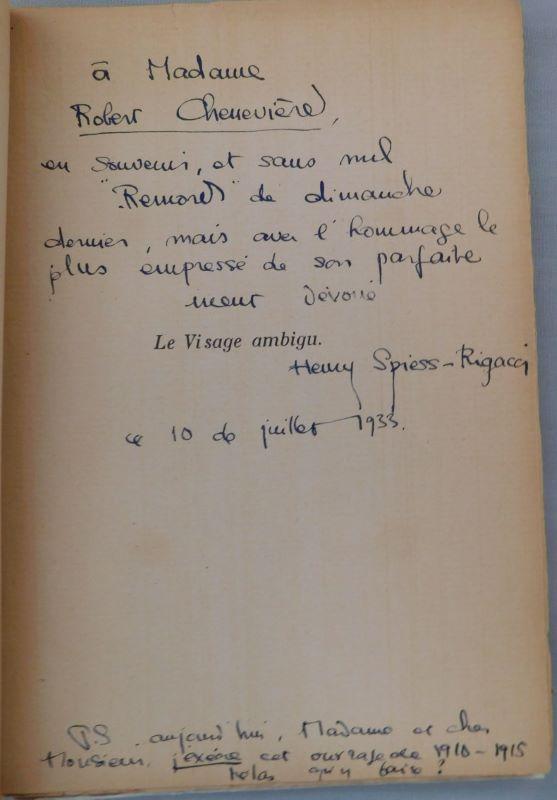 à Madame
Robert Chenevière,
en souvenir, et sans nul
"Remords" de dimanche
dernier, mais avec l'hommage le
plus empressé de son parfaite
ment dévoué
Le Visage ambigu.
Henry Spiess-Rigacci
ce 10 de juillet 1933.
P.S. aujourd'hui, Madame et cher
Monsieur, j'exècre cet ouvrage de 1910-1915
hélas qu'y faire ?